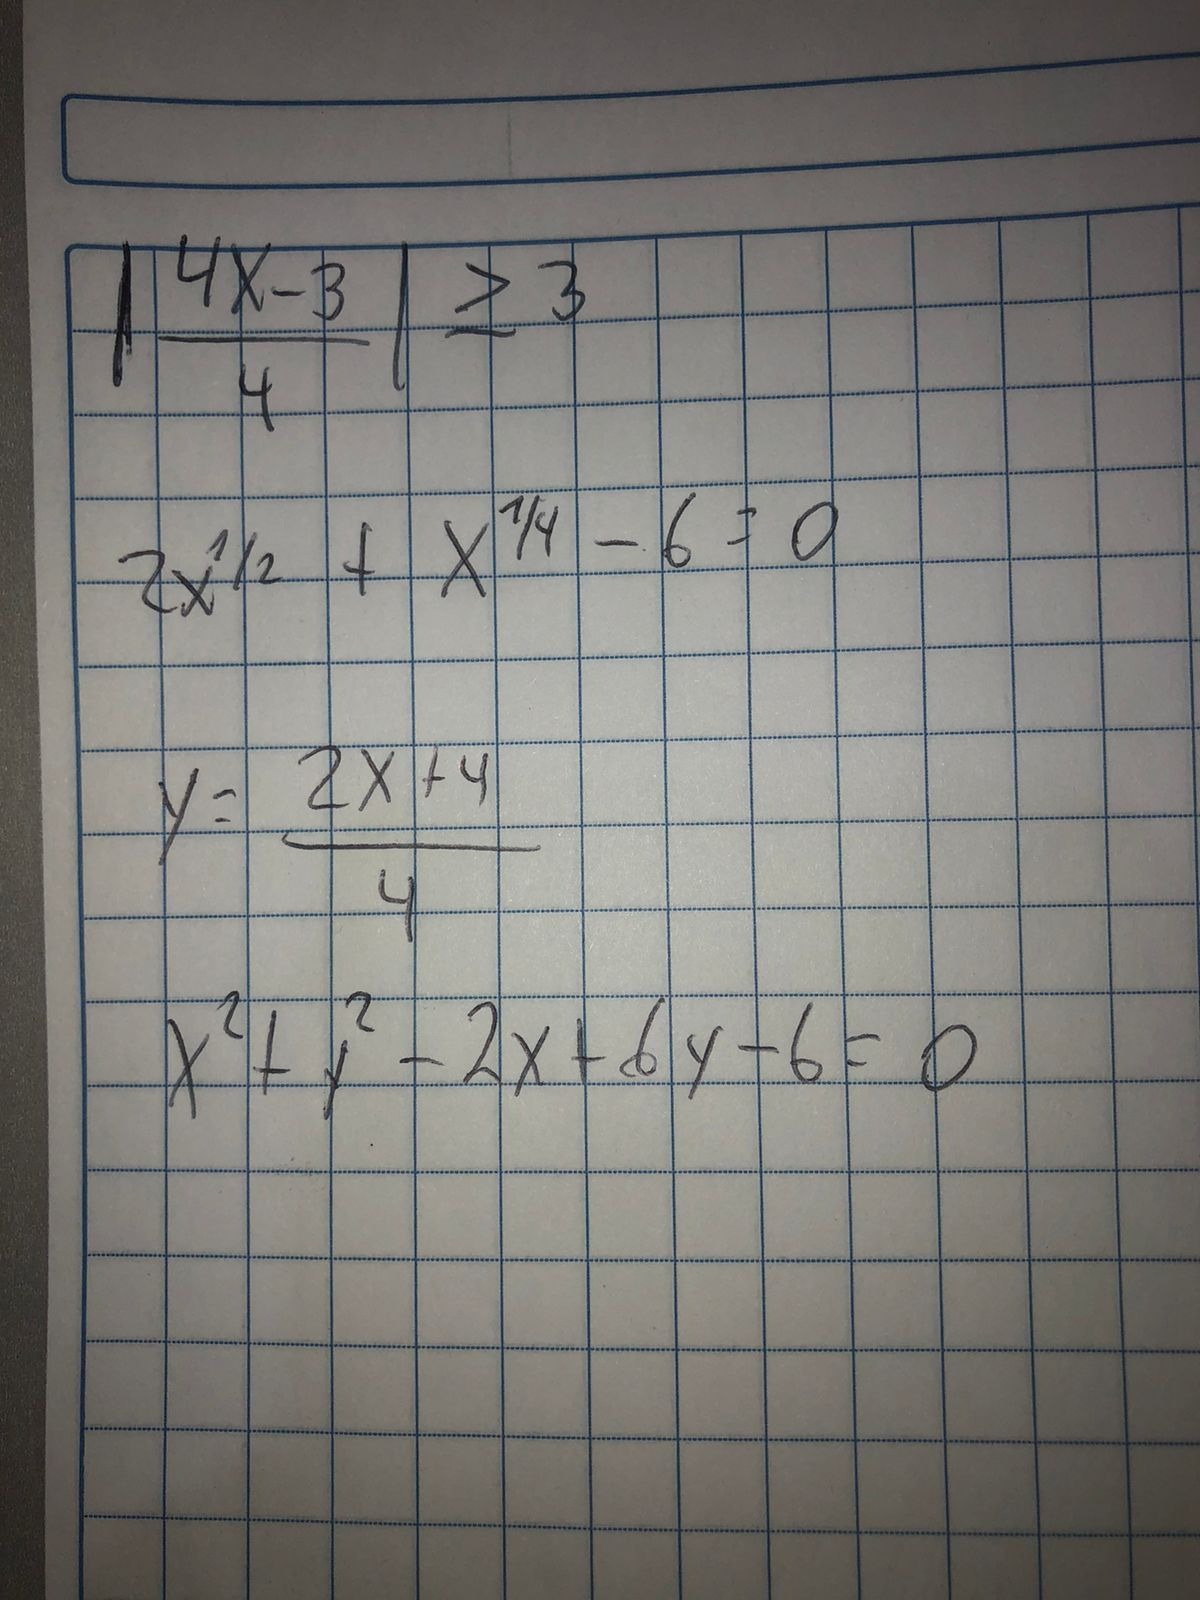 |4x-3 / 4| ≥ 3
2x^1/2 + x^1/4 - 6 = 0
y = 2x+4 / 4
x² + y² - 2x + 6y - 6 = 0